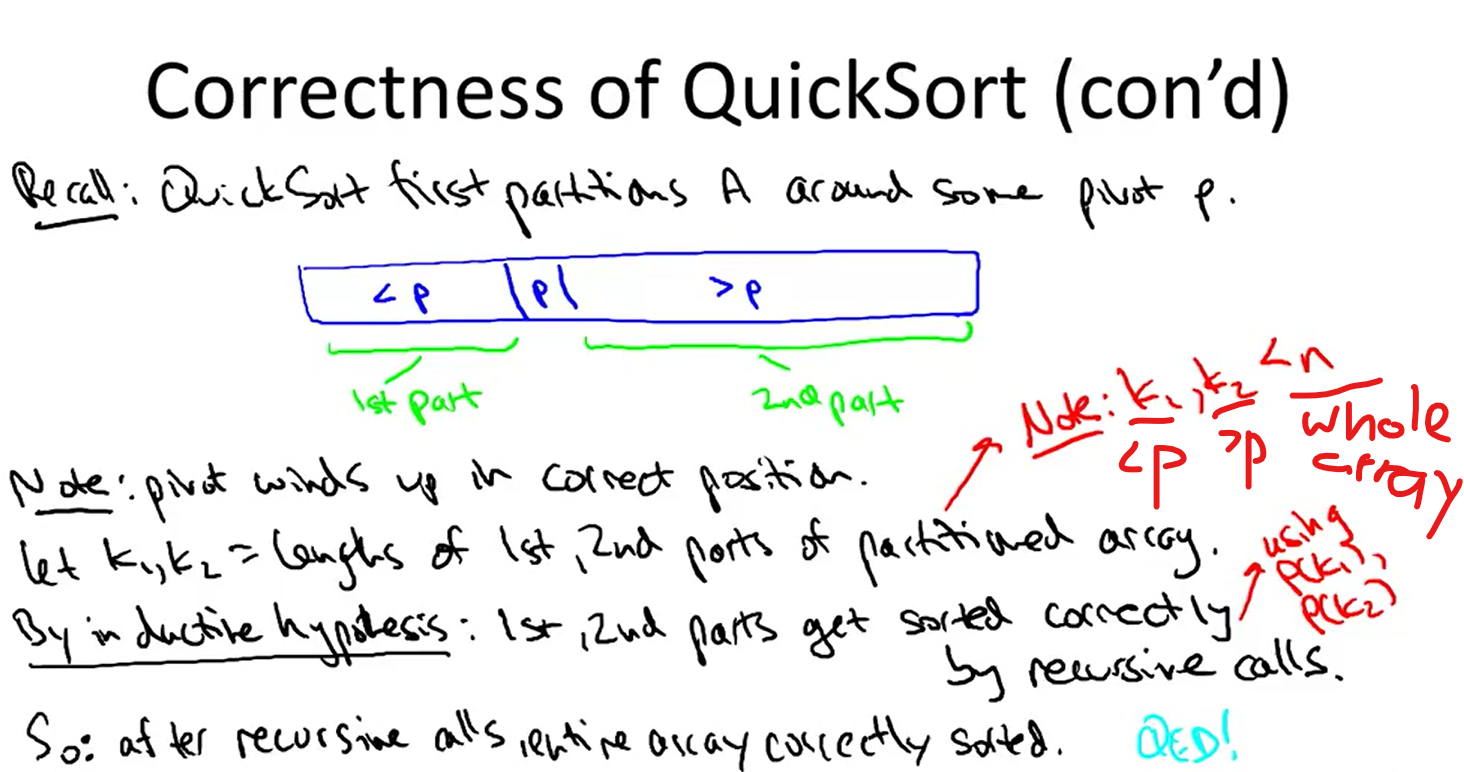 Correctness of QuickSort (con’d)
Recall: QuickSort first partitions A around some pivot p.
< p | p | > p
1st part
2nd part
Note: k₁, k₂ < n
<p >p whole array
Note: pivot winds up in correct position.
let k₁, k₂ = lengths of 1st, 2nd parts of partitioned array.
using
p(k₁),
p(k₂)
By inductive hypothesis: 1st, 2nd parts get sorted correctly
by recursive calls.
So: after recursive calls, entire array correctly sorted.
QED!